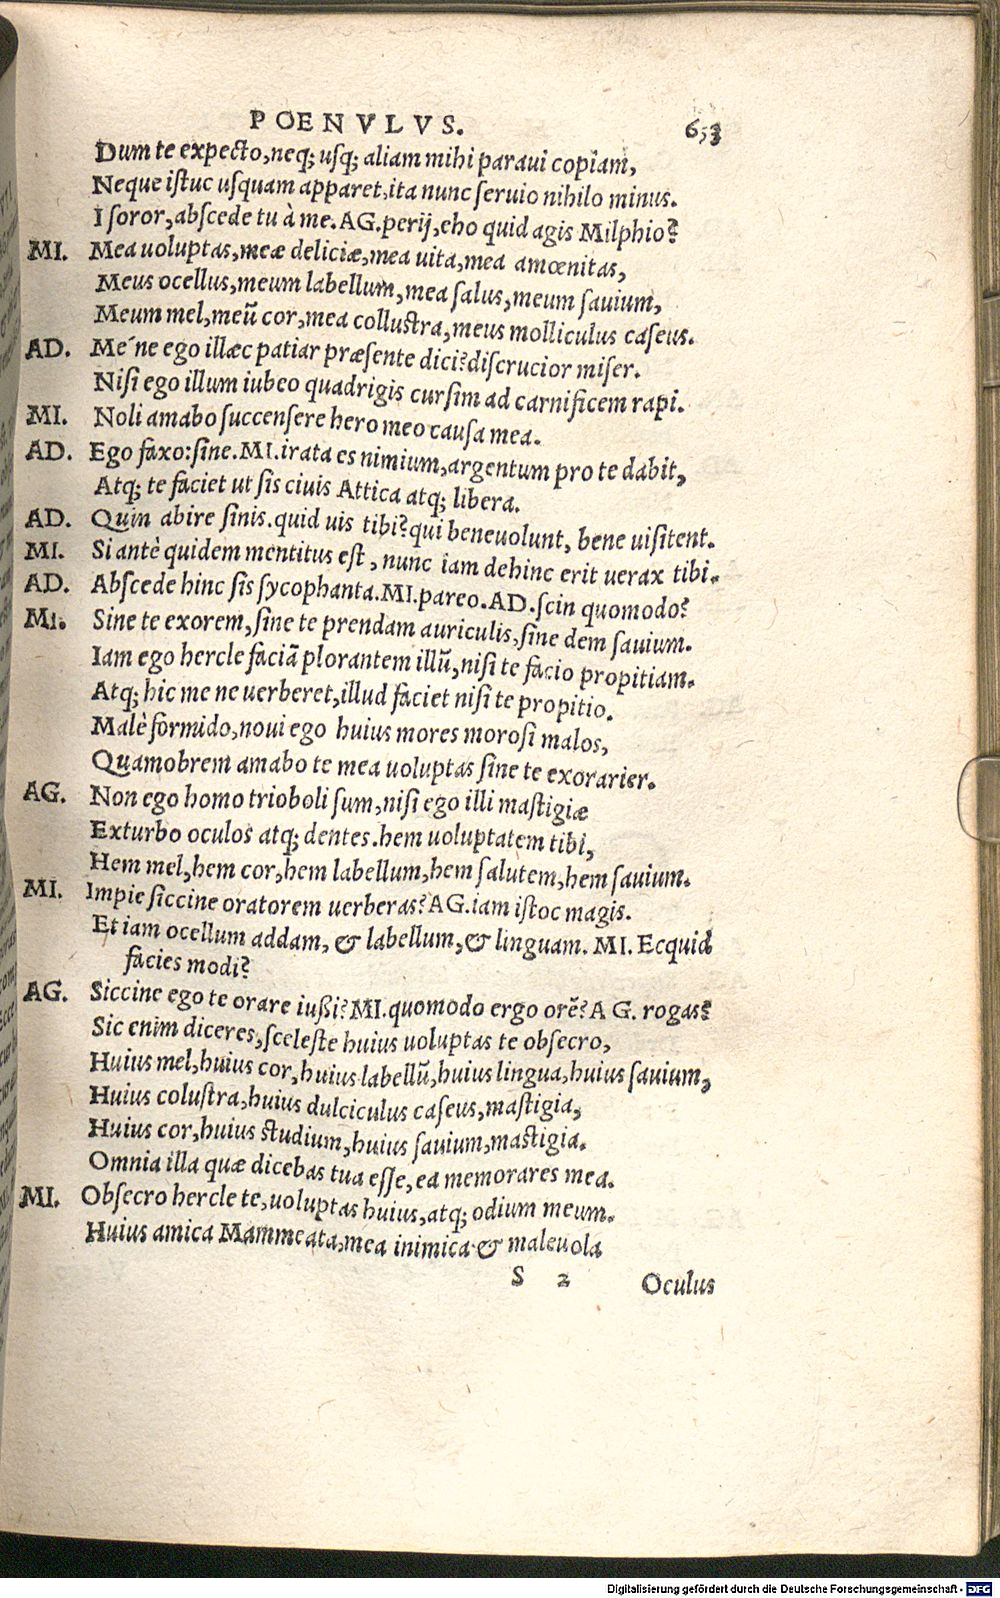 POENVLVS. 653
Dum te expecto, neq; usq; aliam mihi paraui copiam,
Neque istuc usquam apparet, ita nunc seruio nihilo minus.
I soror, abscede tu à me. AG. perij, eho quid agis Milphio?
MI. Mea uoluptas, meæ deliciæ, mea uita, mea amœnitas,
Meus ocellus, meum labellum, mea salus, meum sauium,
Meum mel, meũ cor, mea collustra, meus molliculus caseus.
AD. Me´ne ego illæc patiar præsente dici? discrucior miser.
Nisi ego illum iubeo quadrigis cursim ad carnificem rapi.
MI. Noli amabo succensere hero meo causa mea.
AD. Ego faxo: sine. MI. irata es nimium, argentum pro te dabit,
Atq; te faciet ut sis ciuis Attica atq; libera.
AD. Quin abire sinis. quid uis tibi? qui beneuolunt, bene uisitent.
MI. Si antè quidem mentitus est, nunc iam dehinc erit uerax tibi.
AD. Abscede hinc sis sycophanta. MI. pareo. AD. scin quomodo?
MI. Sine te exorem, sine te prendam auriculis, sine dem sauium.
Iam ego hercle faciã plorantem illũ, nisi te facio propitiam.
Atq; hic me ne uerberet, illud faciet nisi te propitio.
Malè formido, noui ego huius mores morosi malos,
Quamobrem amabo te mea uoluptas sine te exorarier.
AG. Non ego homo trioboli sum, nisi ego illi mastigiæ
Exturbo oculos atq; dentes. hem uoluptatem tibi,
Hem mel, hem cor, hem labellum, hem salutem, hem sauium.
MI. Impie siccine oratorem uerberas? AG. iam istoc magis.
Et iam ocellum addam, & labellum, & linguam. MI. Ecquid
facies modi?
AG. Siccine ego te orare iußi? MI. quomodo ergo orẽ? AG. rogas?
Sic enim diceres, sceleste huius uoluptas te obsecro,
Huius mel, huius cor, huius labellũ, huius lingua, huius sauium,
Huius colustra, huius dulciculus caseus, mastigia,
Huius cor, huius studium, huius sauium, mastigia.
Omnia illa quæ dicebas tua esse, ea memorares mea.
MI. Obsecro hercle te, uoluptas huius, atq; odium meum.
Huius amica Mammeata, mea inimica & maleuola
S 2 Oculus
Digitalisierung gefördert durch die Deutsche Forschungsgemeinschaft - DFG